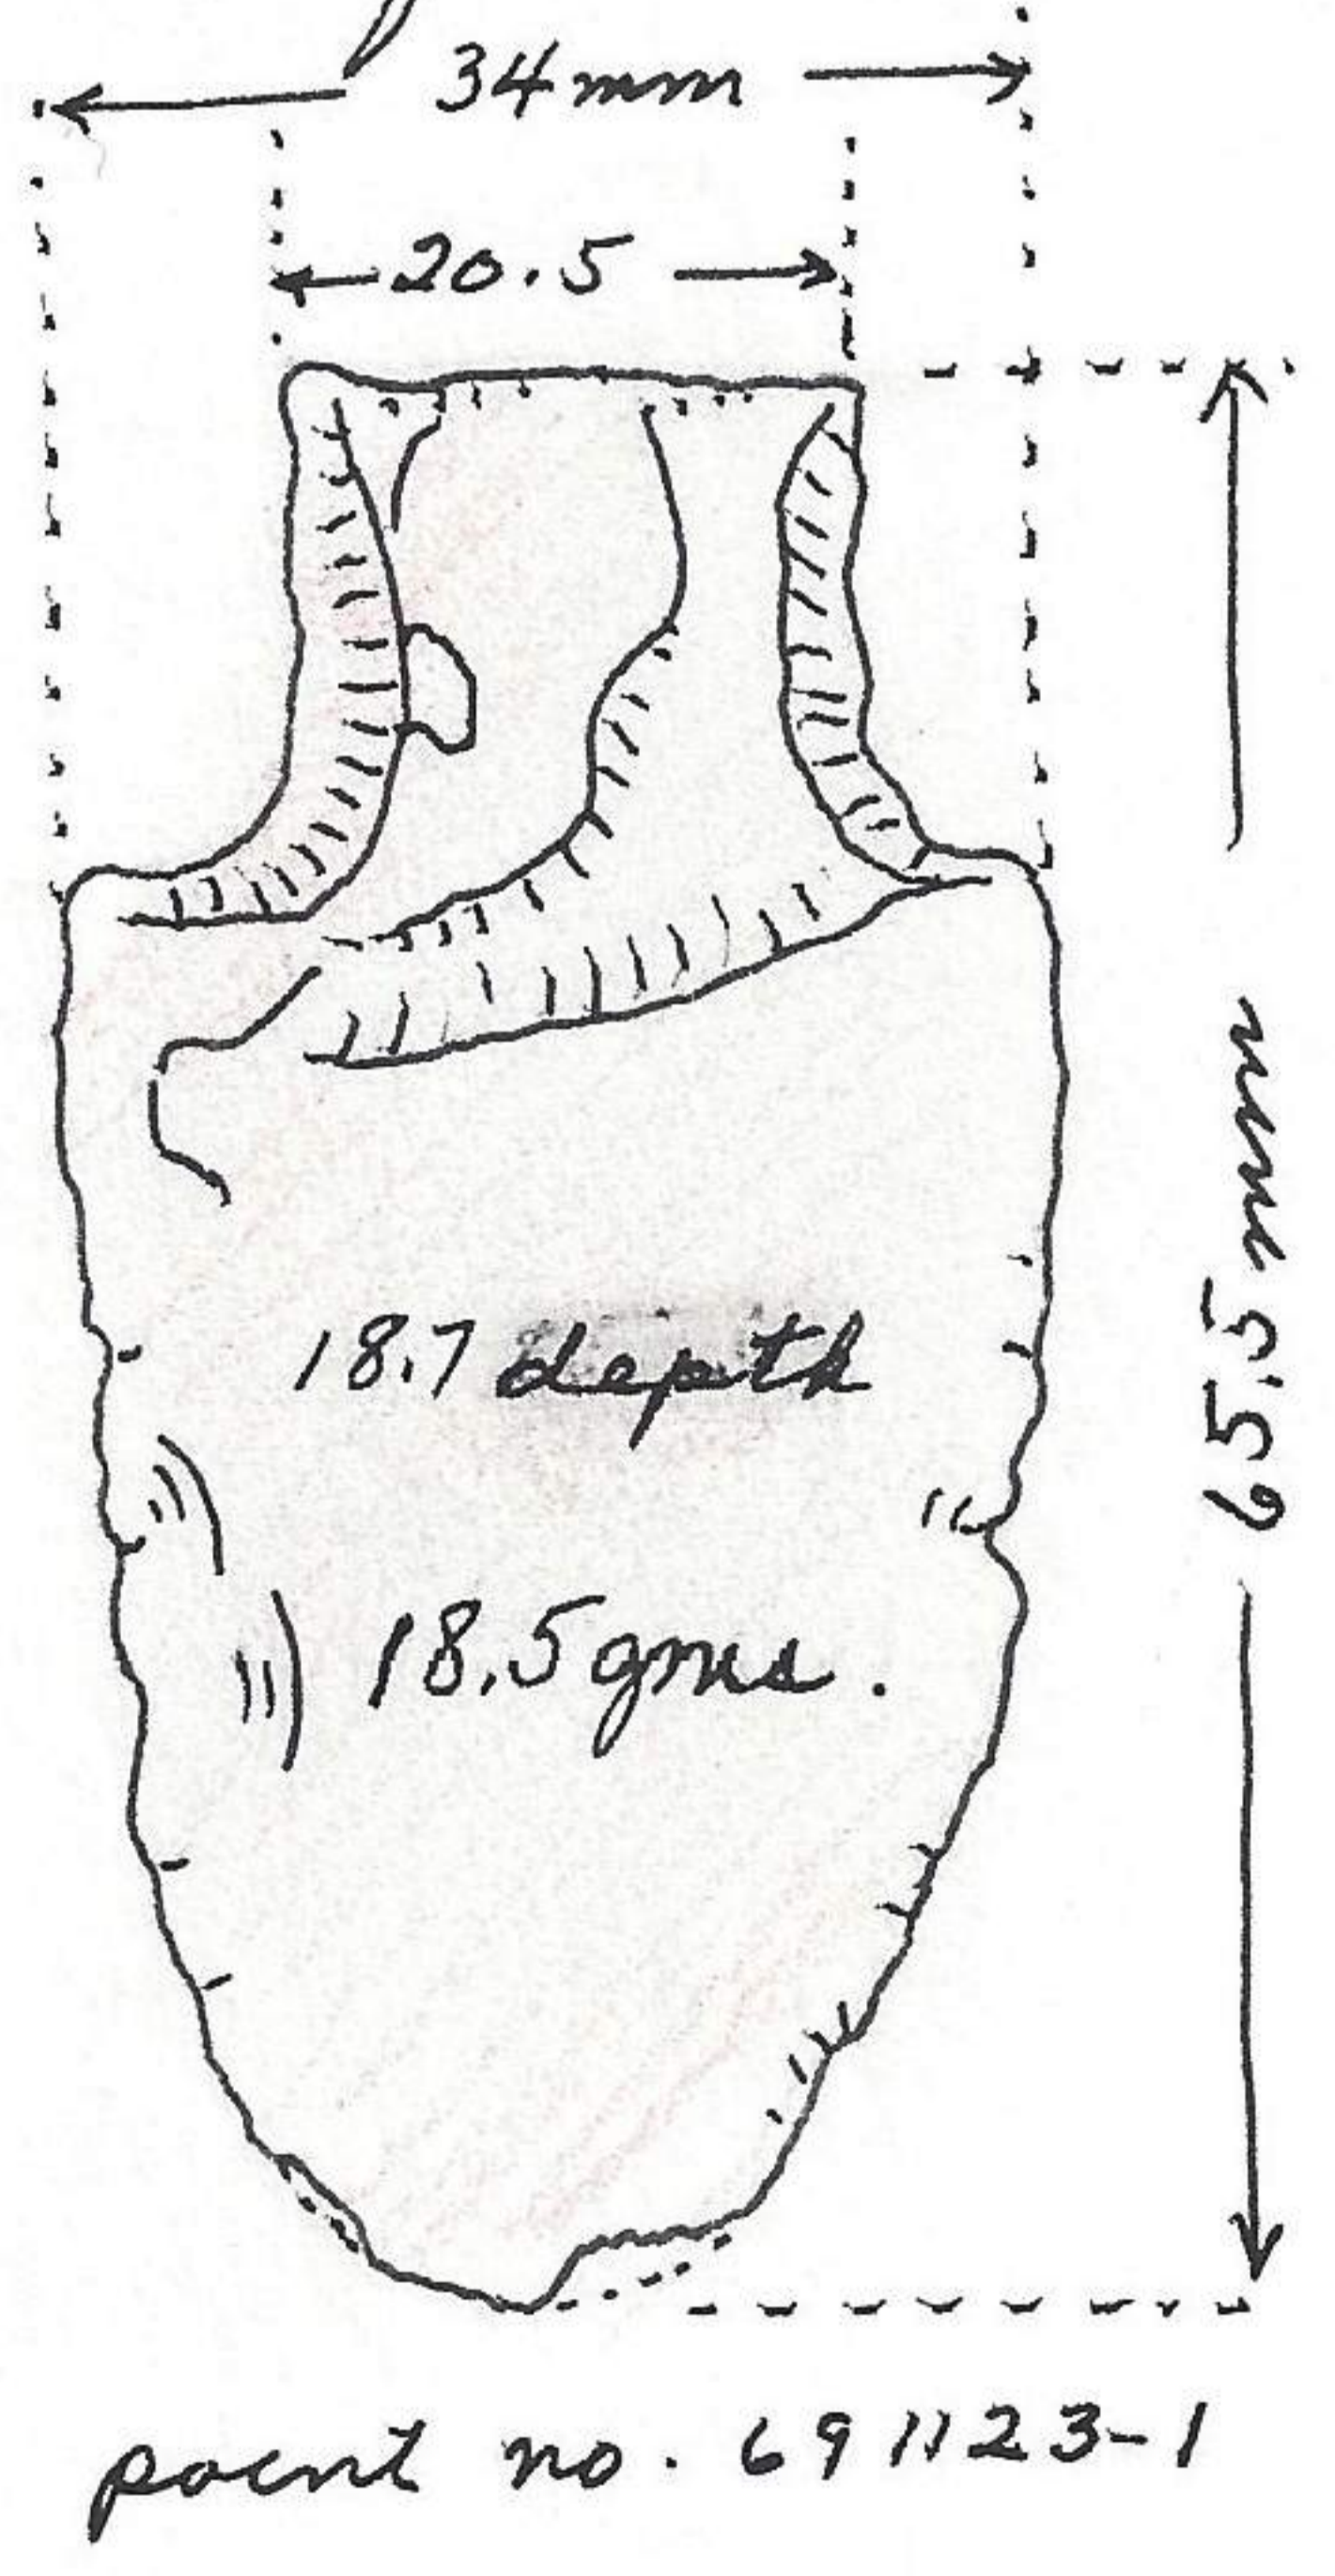 34mm
20.5
65.5 mm
18.7 depth
18.5 gms.
point no. 691123-1